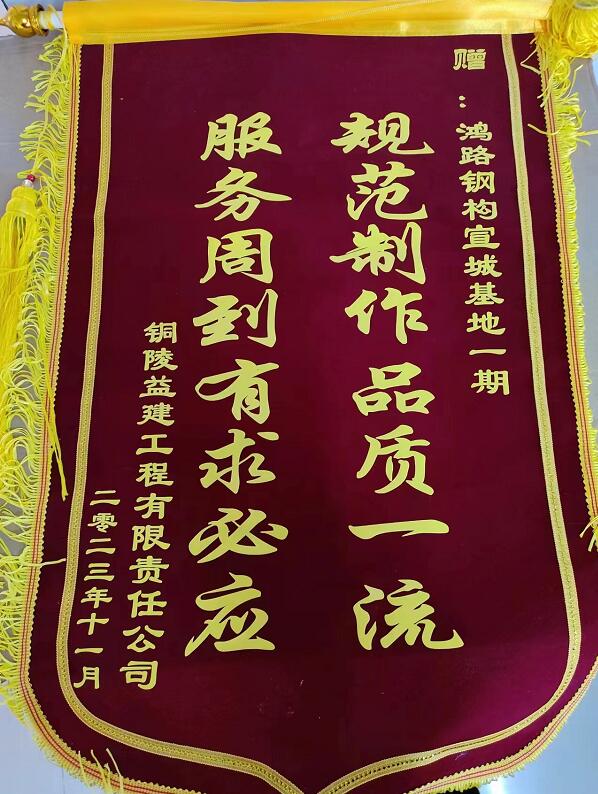 赠：鸿路钢构宣城基地一期
规范制作品质一流
服务周到有求必应
铜陵益建工程有限责任公司
二零二三年十一月